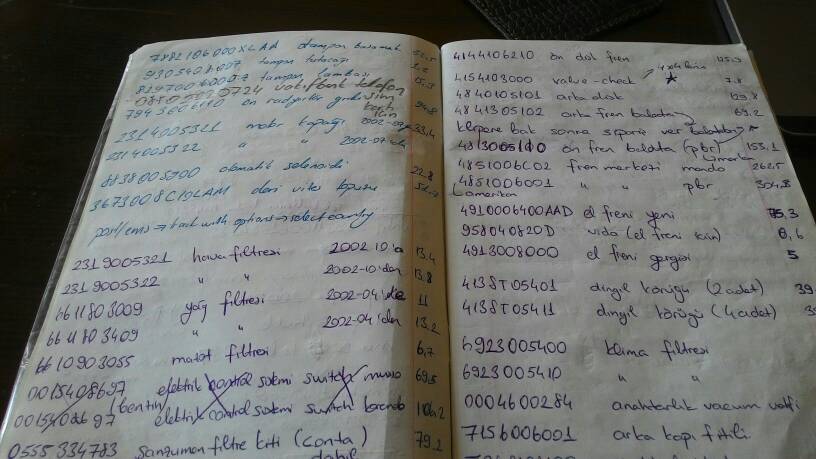 7882106000XLAA tampon basamak 52,5
9305408007 tampon tutacağı
8297006000? tampon lambası 15,3
0850 222 0724 vakıfbank telefon
7943006110 ön radyatör ızgarası 94,8
2314005321 motor kapağı 2002-07'ye 33,4
2314005322 " " 2002-07'den
8838005900 otomatik selenoidi 22,8
3673008C10LAM deri vites topuzu
post/ems → back with options → select country
2319005321 hava filtresi 2002 10'a 13,4
2319005322 " " 2002-10'dan 13,8
6611803009 yağ filtresi 2002-04'de 11
6611803409 " " 2002-04'den 13,2
6610903055 mazot filtresi 6,7
0015408697 elektrik control sistemi switch 69,5
(bentin)
0015408697 elektrik control sistemi switch 106,2
0555334783 sanzuman filtre kiti (conta) 79,1
dahil
4144106210 ön disk fren 125,9
4154103000 valve-check 7,8
4840105101 arka disk 129,8
4841305102 arka fren balata 69,2
klipse bak sonra sipariş ver balataları
4813005100 ön fren balata (pbr) 153,1
4851006C02 fren merkezi mando 262,5
4851006001 " " pbr 304,8
amerikan
4910006400AAD el freni yeni 75,3
958040820D vida (el freni için) 0,6
4913008000 el freni gergisi 5
4138T05401 dingil körüğü (2 adet) 39
4138T05411 dingil körüğü (4 adet)
6923005400 klima filtresi
6923005410 " "
0004600284 anahtarlık vacum valfi
7156006001 arka kapı fitili